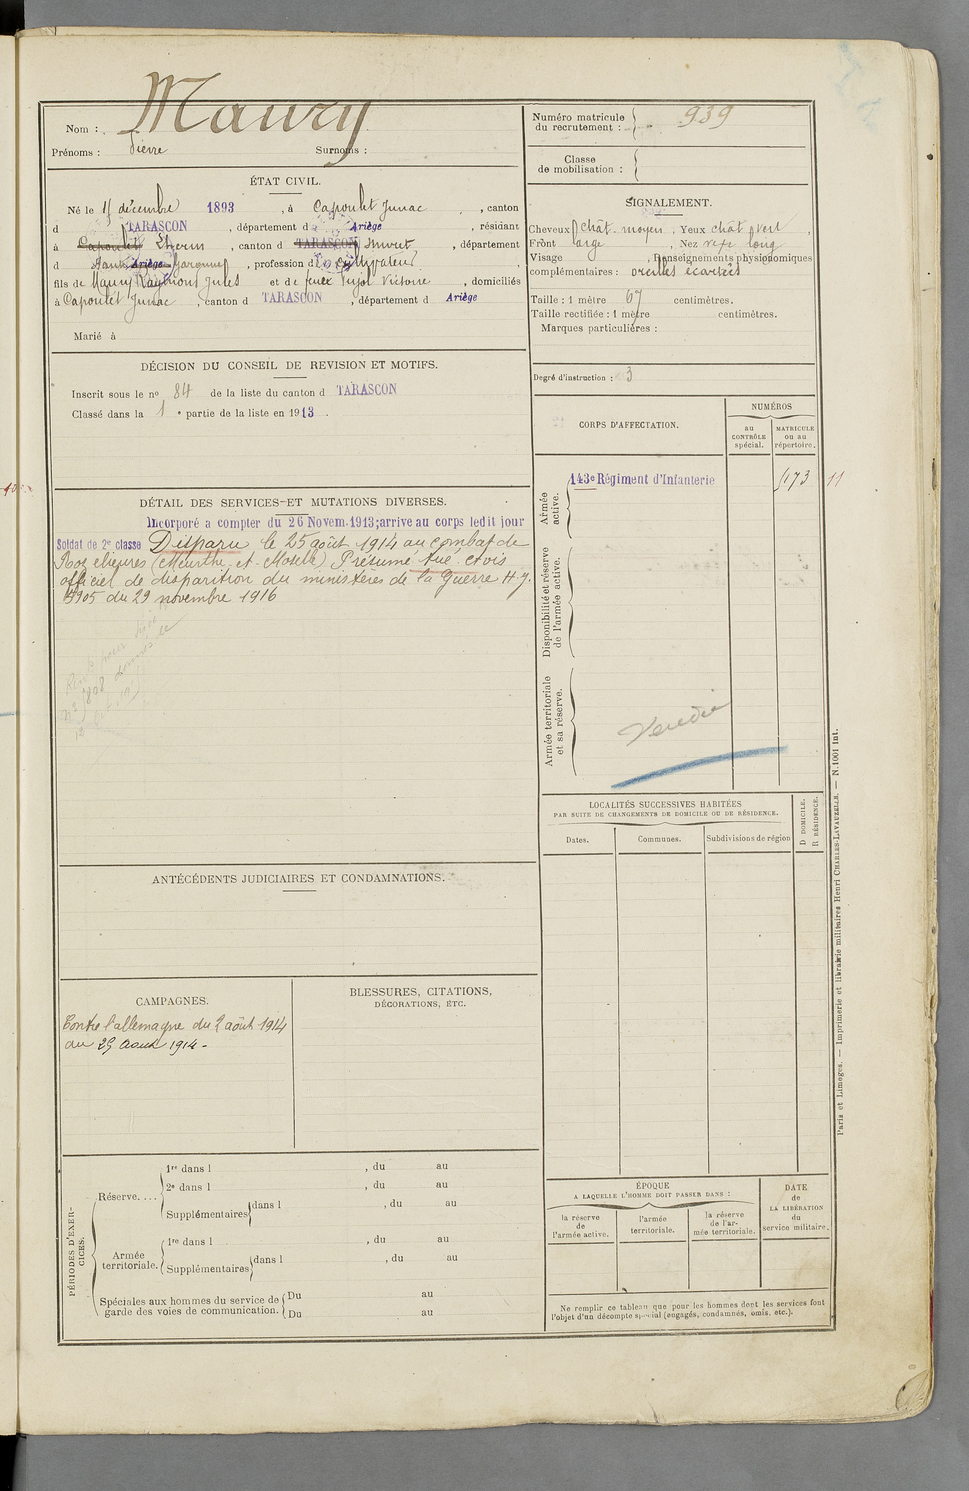 Nom : Maury
Prénoms : Pierre Surnoms :
ÉTAT CIVIL.
Né le 15 décembre 1893, à Capoulet Junac, canton
d TARASCON, département d Ariège, résidant
à Capoulet Lherm, canton d TARASCON Muret, département
d Haute Ariège Garonne, profession d Cultivateur
fils de Maury Raymond Jules et de feue Pujol Victoire, domiciliés
à Capoulet Junac, canton d TARASCON, département d Ariège
Marié à
DÉCISION DU CONSEIL DE REVISION ET MOTIFS.
Inscrit sous le no 84 de la liste du canton d TARASCON
Classé dans la 1 e partie de la liste en 1913.
DÉTAIL DES SERVICES ET MUTATIONS DIVERSES.
Incorporé a compter du 26 Novem. 1913; arrive au corps ledit jour
Soldat de 2e classe Disparu le 25 août 1914 au combat de
Rozelieures (Meurthe et Moselle) Présumé tué avis
officiel de disparition du ministères de la Guerre H.J.
5905 du 29 novembre 1916
ANTÉCÉDENTS JUDICIAIRES ET CONDAMNATIONS.
CAMPAGNES.
Contre l'allemagne du 2 août 1914
au 25 Aout 1914 -
BLESSURES, CITATIONS,
DÉCORATIONS, ETC.
PÉRIODES D'EXERCICES.
Réserve....
1re dans l , du au
2e dans l , du au
Supplémentaires dans l , du au
Armée territoriale.
1re dans l , du au
Supplémentaires dans l , du au
Spéciales aux hommes du service de garde des voies de communication.
Du au
Du au
Numéro matricule du recrutement : 939
Classe de mobilisation :
SIGNALEMENT.
Cheveux chât moyen, Yeux chât vert,
Front large, Nez vexe long
Visage , Renseignements physionomiques
complémentaires : oreilles écartées
Taille : 1 mètre 67 centimètres.
Taille rectifiée : 1 mètre centimètres.
Marques particulières :
Degré d'instruction : 3
CORPS D'AFFECTATION.
NUMÉROS
au CONTRÔLE spécial.
MATRICULE ou au répertoire.
Armée active.
143e Régiment d'Infanterie
173
11
Disponibilité et réserve de l'armée active.
Armée territoriale et sa réserve.
LOCALITÉS SUCCESSIVES HABITÉES
PAR SUITE DE CHANGEMENTS DE DOMICILE OU DE RÉSIDENCE.
Dates. Communes. Subdivisions de région
D DOMICILE.
R RÉSIDENCE.
ÉPOQUE
A LAQUELLE L'HOMME DOIT PASSER DANS :
la réserve de l'armée active.
l'armée territoriale.
la réserve de l'armée territoriale.
DATE de LA LIBÉRATION du service militaire.
Ne remplir ce tableau que pour les hommes dont les services font
l'objet d'un décompte spécial (engagés, condamnés, omis, etc.).
Paris et Limoges. — Imprimerie et librairie militaires Henri CHARLES-LAVAUZELLE. — N. 1001 int.